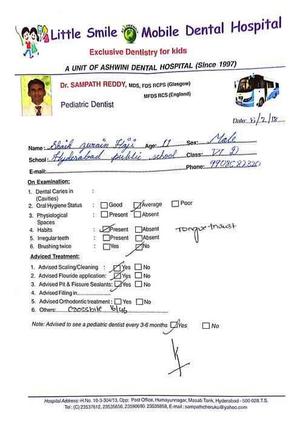 Little Smile Mobile Dental Hospital
Exclusive Dentistry for kids
A UNIT OF ASHWINI DENTAL HOSPITAL (Since 1997)
Dr. SAMPATH REDDY, MDS, FDS RCPS (Glasgow)
MFDS RCS (England)
Pediatric Dentist
Date: /2/18
Name: Shaik Haji Age: 11 Sex: Male
School: Hyderabad public school Class: VI D
E-mail: Phone:
On Examination:
1. Dental Caries in :
(Cavities)
2. Oral Hygiene Status : Good Average Poor
3. Physiological : Present Absent
Spaces
4. Habits : Present Absent Tongue thrust
5. Irregular teeth : Present Absent
6. Brushing twice : Yes No
Adviced Treatment:
1. Advised Scaling/Cleaning : Yes No
2. Advised Flouride application: Yes No
3. Advised Pit & Fissure Sealants: Yes No
4. Advised Filling in
5. Advised Orthodontic treatment : Yes No
6. Others: Crossbite
Note: Advised to see a pediatric dentist every 3-6 months Yes No
Hospital Address: H.No. 10-3-304/13, Opp: Post Office, Humayunnagar, Masab Tank, Hyderabad - 500 028.T.S.
Tel: (C) 23537612, 23535656, 23590690, 23535858, E-mail : sampathcheruku@yahoo.com